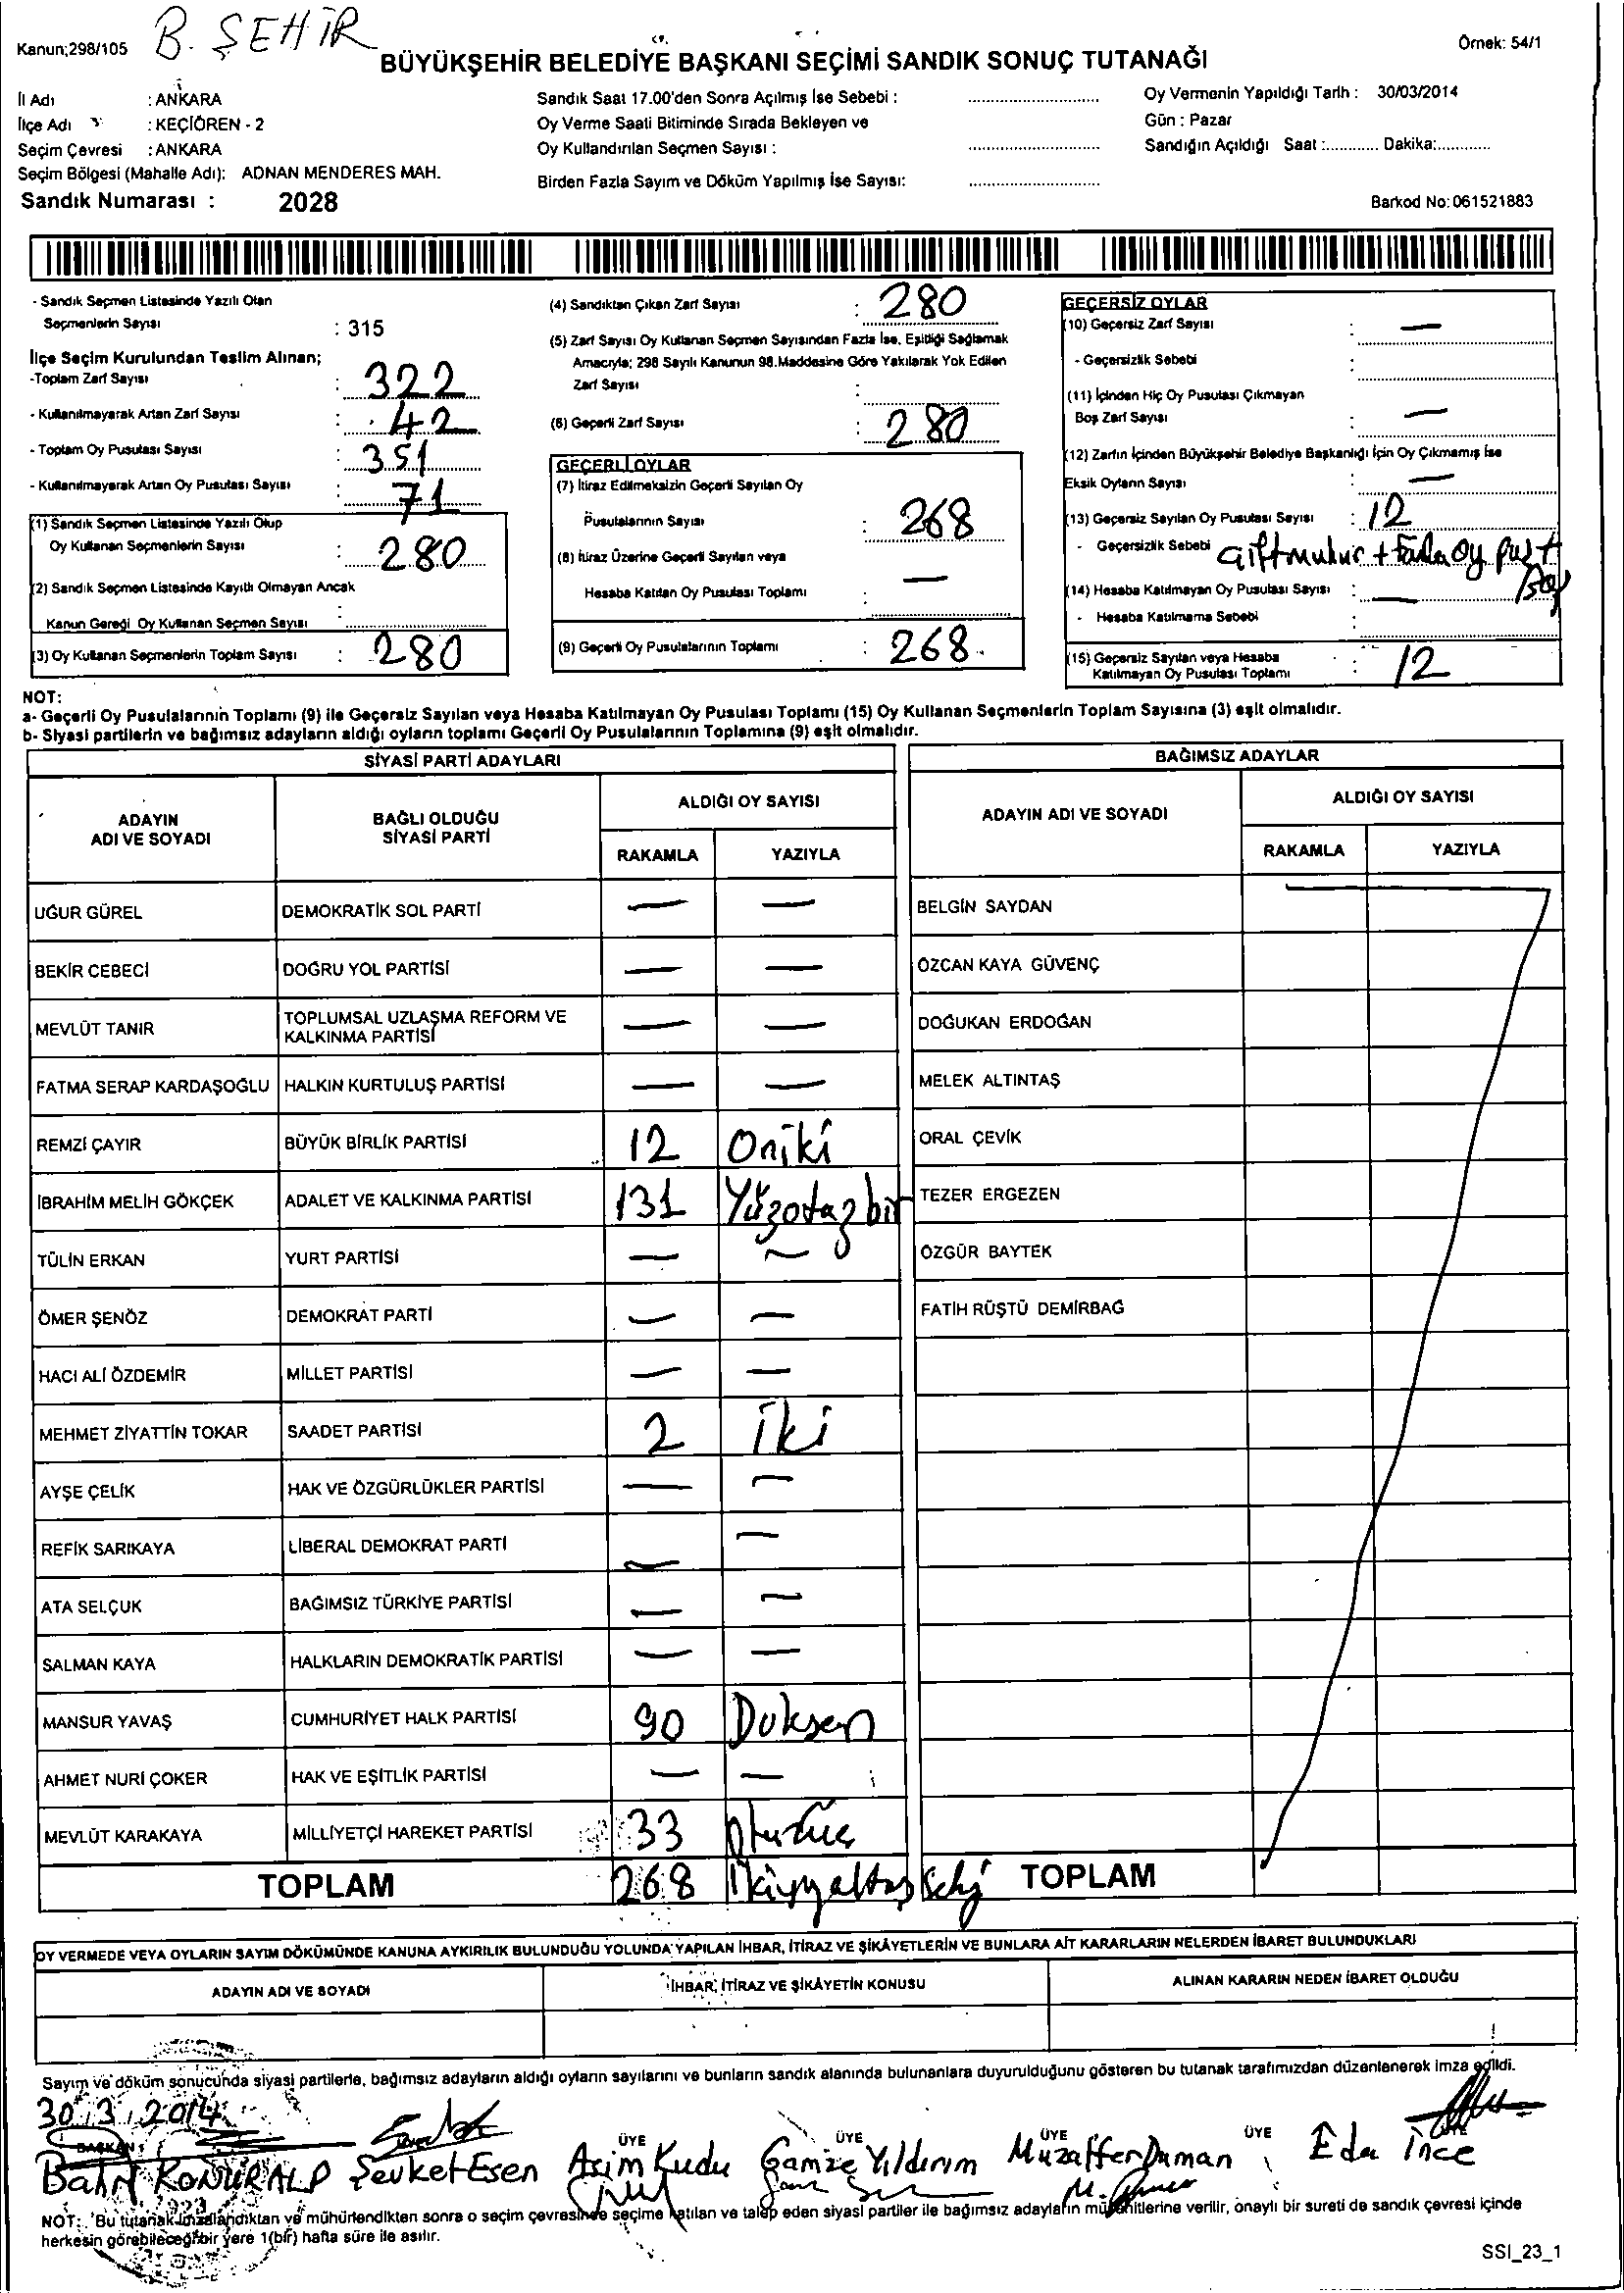 B. ŞEHİR
Kanun;298/105
Örnek: 54/1
BÜYÜKŞEHİR BELEDİYE BAŞKANI SEÇİMİ SANDIK SONUÇ TUTANAĞI
İl Adı : ANKARA
İlçe Adı : KEÇİÖREN - 2
Seçim Çevresi : ANKARA
Seçim Bölgesi (Mahalle Adı): ADNAN MENDERES MAH.
Sandık Numarası : 2028
Sandık Saat 17.00'den Sonra Açılmış İse Sebebi :
Oy Verme Saati Bitiminde Sırada Bekleyen ve
Oy Kullandırılan Seçmen Sayısı :
Birden Fazla Sayım ve Döküm Yapılmış İse Sayısı:
Oy Vermenin Yapıldığı Tarih : 30/03/2014
Gün : Pazar
Sandığın Açıldığı Saat :............ Dakika:............
Barkod No:061521883
- Sandık Seçmen Listesinde Yazılı Olan
Seçmenlerin Sayısı : 315
İlçe Seçim Kurulundan Teslim Alınan;
-Toplam Zarf Sayısı : 322
- Kullanılmayarak Artan Zarf Sayısı : 42
- Toplam Oy Pusulası Sayısı : 351
- Kullanılmayarak Artan Oy Pusulası Sayısı : 71
(1) Sandık Seçmen Listesinde Yazılı Olup
Oy Kullanan Seçmenlerin Sayısı : 280
(2) Sandık Seçmen Listesinde Kayıtlı Olmayan Ancak
Kanun Gereği Oy Kullanan Seçmen Sayısı :
(3) Oy Kullanan Seçmenlerin Toplam Sayısı : 280
(4) Sandıktan Çıkan Zarf Sayısı : 280
(5) Zarf Sayısı Oy Kullanan Seçmen Sayısından Fazla İse, Eşitliği Sağlamak
Amacıyla; 298 Sayılı Kanunun 98.Maddesine Göre Yakılarak Yok Edilen
Zarf Sayısı :
(6) Geçerli Zarf Sayısı : 280
GEÇERLİ OYLAR
(7) İtiraz Edilmeksizin Geçerli Sayılan Oy
Pusulalarının Sayısı : 268
(8) İtiraz Üzerine Geçerli Sayılan veya
Hesaba Katılan Oy Pusulası Toplamı : —
(9) Geçerli Oy Pusulalarının Toplamı : 268
GEÇERSİZ OYLAR
(10) Geçersiz Zarf Sayısı : —
- Geçersizlik Sebebi :
(11) İçinden Hiç Oy Pusulası Çıkmayan
Boş Zarf Sayısı : —
(12) Zarfın İçinden Büyükşehir Belediye Başkanlığı İçin Oy Çıkmamış İse
Eksik Oyların Sayısı : —
(13) Geçersiz Sayılan Oy Pusulası Sayısı : 12
- Geçersizlik Sebebi
(14) Hesaba Katılmayan Oy Pusulası Sayısı : —
- Hesaba Katılmama Sebebi :
(15) Geçersiz Sayılan veya Hesaba
Katılmayan Oy Pusulası Toplamı : 12
NOT:
a- Geçerli Oy Pusulalarının Toplamı (9) ile Geçersiz Sayılan veya Hesaba Katılmayan Oy Pusulası Toplamı (15) Oy Kullanan Seçmenlerin Toplam Sayısına (3) eşit olmalıdır.
b- Siyasi partilerin ve bağımsız adayların aldığı oyların toplamı Geçerli Oy Pusulalarının Toplamına (9) eşit olmalıdır.
SİYASİ PARTİ ADAYLARI
ADAYIN ADI VE SOYADI BAĞLI OLDUĞU SİYASİ PARTİ ALDIĞI OY SAYISI
RAKAMLA YAZIYLA
UĞUR GÜREL DEMOKRATİK SOL PARTİ — —
BEKİR CEBECİ DOĞRU YOL PARTİSİ — —
MEVLÜT TANIR TOPLUMSAL UZLAŞMA REFORM VE KALKINMA PARTİSİ — —
FATMA SERAP KARDAŞOĞLU HALKIN KURTULUŞ PARTİSİ — —
REMZİ ÇAYIR BÜYÜK BİRLİK PARTİSİ 12 Oniki
İBRAHİM MELİH GÖKÇEK ADALET VE KALKINMA PARTİSİ 131 Yüzotuzbir
TÜLİN ERKAN YURT PARTİSİ — —
ÖMER ŞENÖZ DEMOKRAT PARTİ — —
HACI ALİ ÖZDEMİR MİLLET PARTİSİ — —
MEHMET ZİYATTİN TOKAR SAADET PARTİSİ 2 İki
AYŞE ÇELİK HAK VE ÖZGÜRLÜKLER PARTİSİ — —
REFİK SARIKAYA LİBERAL DEMOKRAT PARTİ — —
ATA SELÇUK BAĞIMSIZ TÜRKİYE PARTİSİ — —
SALMAN KAYA HALKLARIN DEMOKRATİK PARTİSİ — —
MANSUR YAVAŞ CUMHURİYET HALK PARTİSİ 90 Doksan
AHMET NURİ ÇOKER HAK VE EŞİTLİK PARTİSİ — —
MEVLÜT KARAKAYA MİLLİYETÇİ HAREKET PARTİSİ 33 otuzüç
TOPLAM 268
BAĞIMSIZ ADAYLAR
ADAYIN ADI VE SOYADI ALDIĞI OY SAYISI
RAKAMLA YAZIYLA
BELGİN SAYDAN
ÖZCAN KAYA GÜVENÇ
DOĞUKAN ERDOĞAN
MELEK ALTINTAŞ
ORAL ÇEVİK
TEZER ERGEZEN
ÖZGÜR BAYTEK
FATİH RÜŞTÜ DEMİRBAĞ
TOPLAM
OY VERMEDE VEYA OYLARIN SAYIM DÖKÜMÜNDE KANUNA AYKIRILIK BULUNDUĞU YOLUNDA YAPILAN İHBAR, İTİRAZ VE ŞİKÂYETLERİN VE BUNLARA AİT KARARLARIN NELERDEN İBARET BULUNDUKLARI
ADAYIN ADI VE SOYADI İHBAR, İTİRAZ VE ŞİKÂYETİN KONUSU ALINAN KARARIN NEDEN İBARET OLDUĞU
Sayım ve döküm sonucunda siyasi partilerle, bağımsız adayların aldığı oyların sayılarını ve bunların sandık alanında bulunanlara duyurulduğunu gösteren bu tutanak tarafımızdan düzenlenerek imza edildi.
30.3.2014
BAŞKAN ÜYE ÜYE ÜYE ÜYE
Bahri KONURALP Şevket Esen Asim Kudu Gamze Yıldırım Muzaffer Duman Eda İnce
NOT: Bu tutanak imzalandıktan ve mühürlendikten sonra o seçim çevresinde seçime katılan ve talep eden siyasi partiler ile bağımsız adayların müşahitlerine verilir, onaylı bir sureti de sandık çevresi içinde
herkesin görebileceği bir yere 1(bir) hafta süre ile asılır.
SSI_23_1